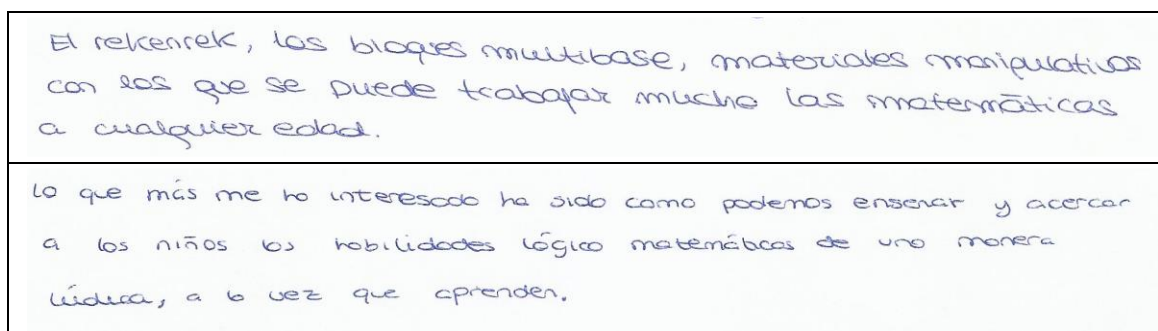 El rekenrek, los bloques multibase, materiales manipulativos
con los que se puede trabajar mucho las matemáticas
a cualquier edad.
Lo que más me ha interesado ha sido como podemos enseñar y acercar
a los niños las habilidades lógico matemáticas de una manera
lúdica, a la vez que aprenden.